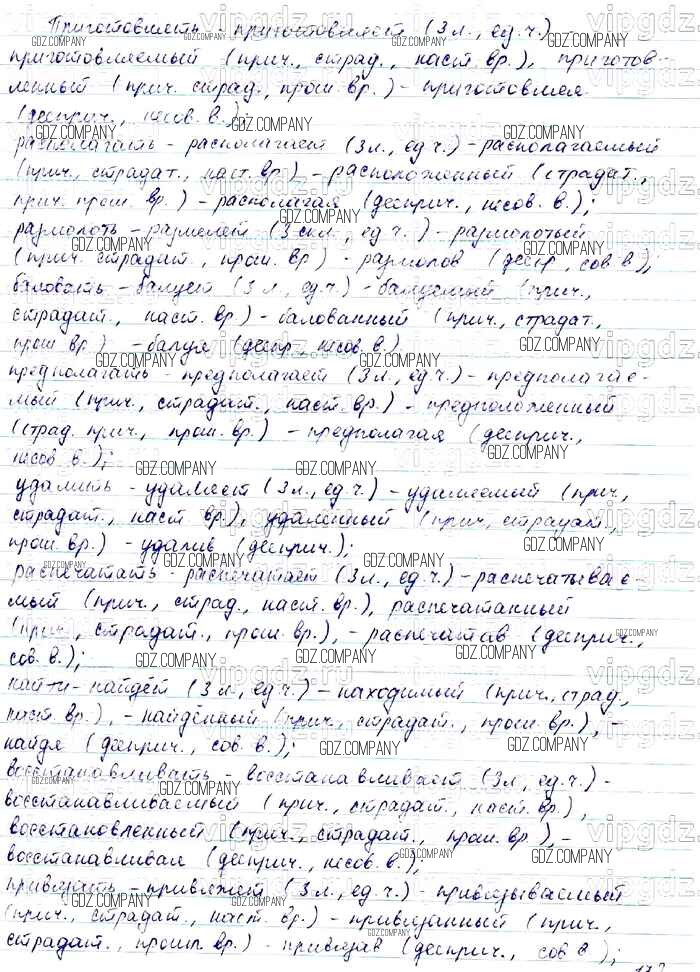 Приготовлять - приготовляет (3 л., ед.ч.)
приготовляемый (прич., страд., наст. вр.), приготов-
ленный (прич. страд., прош. вр.) - приготовляя
(дееприч., несов. в.);
располагать - располагает (3 л., ед.ч.) - располагаемый
(прич., страдат., наст. вр.) - расположенный (страдат.,
прич. прош. вр.) - располагая (дееприч., несов. в.);
размолоть - размелет (3 скл., ед ч.) - размолотый
(прич. страдат., прош. вр) - размолов (деепр, сов в);
баловать - балует (3 л., ед.ч.) - балуемый (прич.,
страдат., наст. вр) - балованный (прич., страдат.,
прош вр) - балуя (деепр, несов. в.)
предполагать - предполагает (3л., ед ч.) - предполагае-
мый (прич., страдат., наст. вр.) - предположенный
(страд. прич., прош. вр.) - предполагая (дееприч.,
несов в.);
удалить - удаляет (3 л., ед ч.) - удаляемый (прич,
страдат., наст вр.), удаленный (прич, страдат.,
прош. вр.) - удалив (дееприч.);
распечатать - распечатает (3 л., ед.ч.) - распечатывае-
мый (прич., страд., наст. вр.), распечатанный
(прич., страдат., прош. вр.), - распечатав (дееприч.,
сов. в.);
найти - найдёт (3 л., ед.ч.) - находимый (прич., страд.,
наст. вр.), - найденный (прич., страдат., прош. вр.), -
найдя (дееприч., сов. в.);
восстанавливать - восстанавливает (3л, ед.ч.) -
восстанавливаемый (прич., страдат., наст. вр),
восстановленный (прич., страдат., прош. вр.), -
восстанавливая (дееприч., несов. в.);
привязать - привяжет (3 л., ед.ч.) - привязываемый
(прич., страдат., наст. вр.) - привязанный (прич.,
страдат., прошл. вр.) - привязав (дееприч., сов в);
GDZ.COMPANY
vipgdz.ru